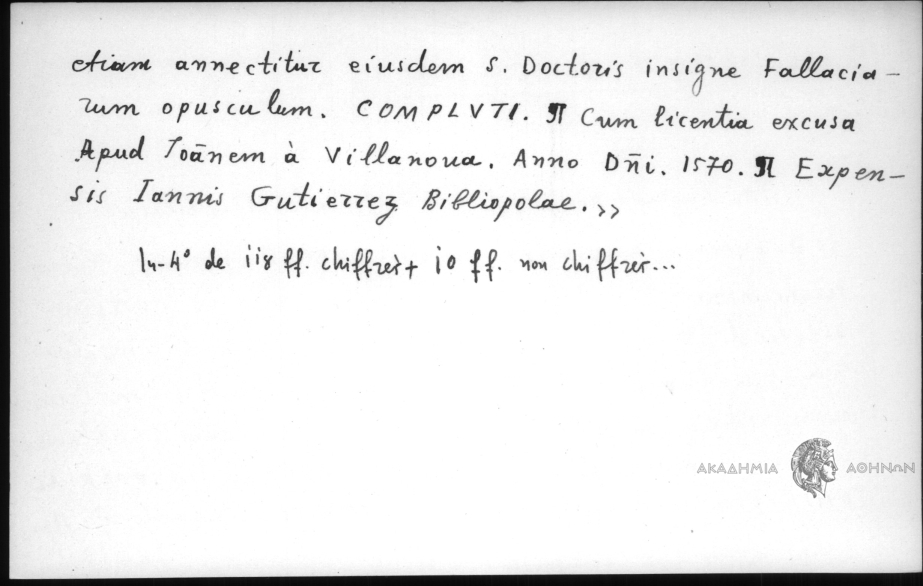 etiam annectitur eiusdem S. Doctoris insigne Fallacia-
rum opusculum. COMPLVTI. ¶ Cum licentia excusa
Apud Ioānem à Villanoua. Anno Dñi. 1570. ¶ Expen-
sis Iannis Gutierrez Bibliopolae.»
In-4° de 118 ff. chiffrér + 10 ff. non chiffrér...
ΑΚΑΔΗΜΙΑ ΑΘΗΝΩΝ